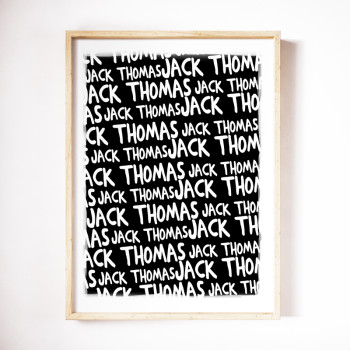 JACK THOMAS
JACK THOMAS JACK THOMAS
JACK THOMAS JACK
AS JACK THOMAS JACK THOM
JACK THOMAS JACK THOMAS
MAS JACK THOMAS JACK THO
JACK THOMAS JACK THOMAS
AS JACK THOMAS JACK THOM
JACK THOMAS JACK THOMA
AS JACK THOMAS JACK THOMA
JACK THOMAS JACK THOM
JACK THOMAS JACK THO